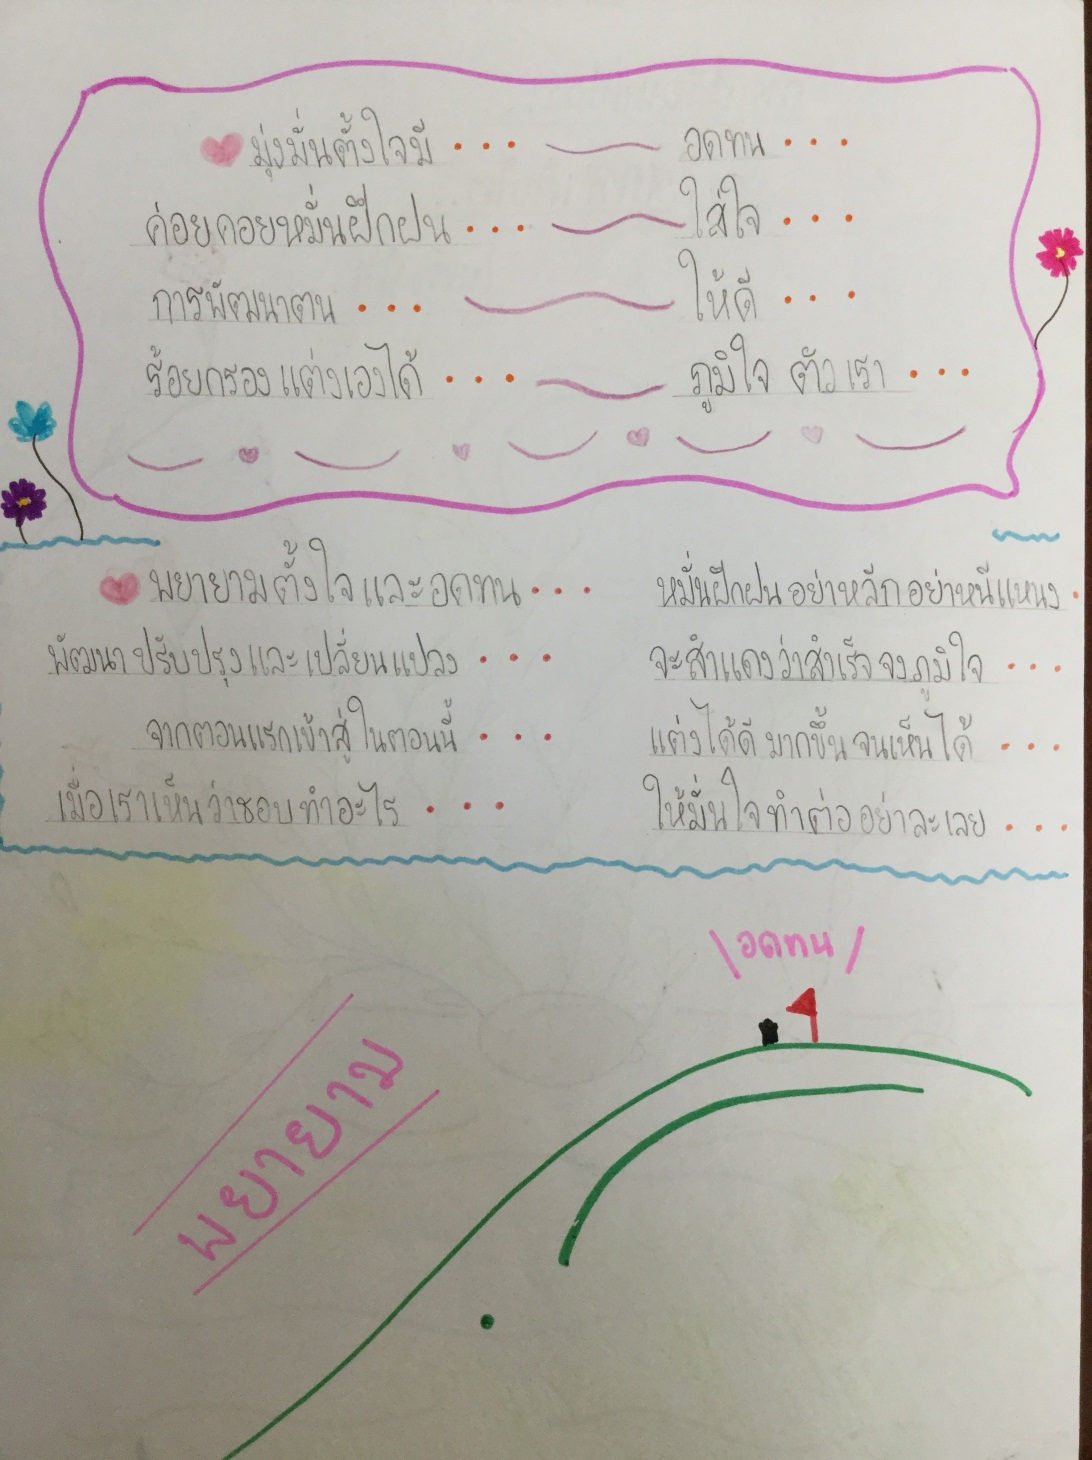 มุ่งมั่นตั้งใจมี... อดทน...
ค่อยคอยหมั่นฝึกฝน... ใส่ใจ...
การพัฒนาตน... ให้ดี...
ร้อยกรองแต่งเองได้... ภูมิใจ ตัวเรา...
พยายามตั้งใจและอดทน... หมั่นฝึกฝน อย่าหลีก อย่าหนีแหนง.
พัฒนา ปรับปรุง และ เปลี่ยนแปลง... จะสำแดงว่าสำเร็จ จงภูมิใจ...
จากตอนแรกเข้าสู่ในตอนนี้... แต่งได้ดี มากขึ้น จนเห็นได้...
เมื่อเราเห็นว่าชอบทำอะไร... ให้มั่นใจ ทำต่อ อย่าละเลย...
\อดทน/
พยายาม